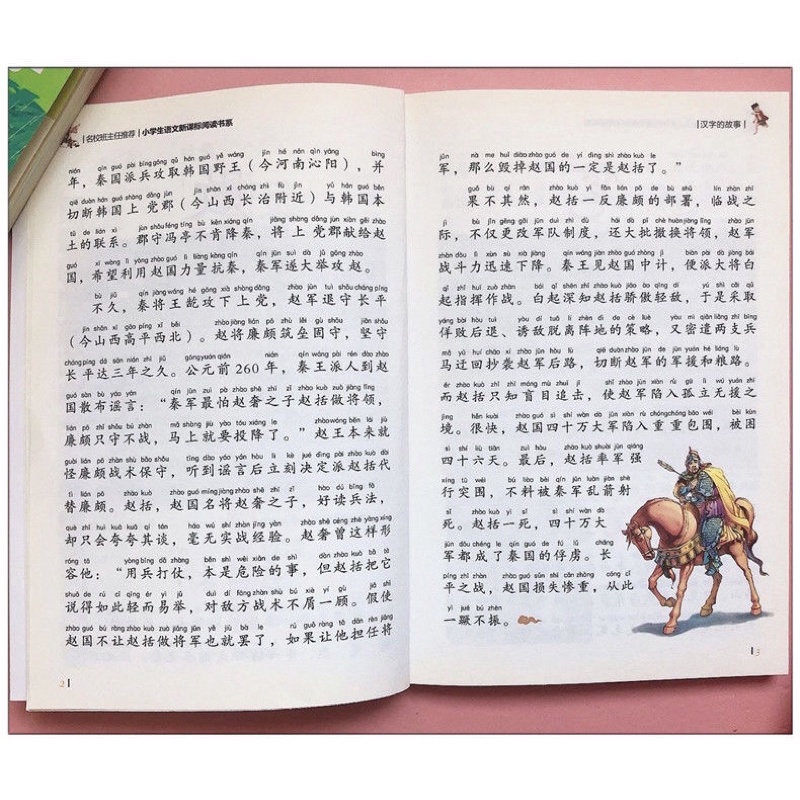 名校班主任推荐|小学生语文新课标阅读书系
年，秦国派兵攻取韩国野王（今河南沁阳），并
切断韩国上党郡（今山西长治附近）与韩国本
土的联系。郡守冯亭不肯降秦，将上党郡献给赵
国，希望利用赵国力量抗秦，秦军遂大举攻赵。
不久，秦将王龁攻下上党，赵军退守长平
（今山西高平西北）。赵将廉颇筑垒固守，坚守
长平达三年之久。公元前260年，秦王派人到赵
国散布谣言：“秦军最怕赵奢之子赵括做将领，
廉颇只守不战，马上就要投降了。”赵王本来就
怪廉颇战术保守，听到谣言后立刻决定派赵括代
替廉颇。赵括，赵国名将赵奢之子，好读兵法，
却只会夸夸其谈，毫无实战经验。赵奢曾这样形
容他：“用兵打仗，本是危险的事，但赵括把它
说得如此轻而易举，对敌方战术不屑一顾。假使
赵国不让赵括做将军也就罢了，如果让他担任将
2
汉字的故事
军，那么毁掉赵国的一定是赵括了。”
果不其然，赵括一反廉颇的部署，临战之
际，不仅更改军队制度，还大批撤换将领，赵军
战斗力迅速下降。秦王见赵国中计，便派大将白
起指挥作战。白起深知赵括骄傲轻敌，于是采取
佯败后退、诱敌脱离阵地的策略，又密遣两支兵
马迂回抄袭赵军后路，切断赵军的军援和粮路。
而赵括只知盲目追击，使赵军陷入孤立无援之
境。很快，赵国四十万大军陷入重重包围，被困
四十六天。最后，赵括率军强
行突围，不料被秦军乱箭射
死。赵括一死，四十万大
军都成了秦国的俘虏。长
平之战，赵国损失惨重，从此
一蹶不振。
3